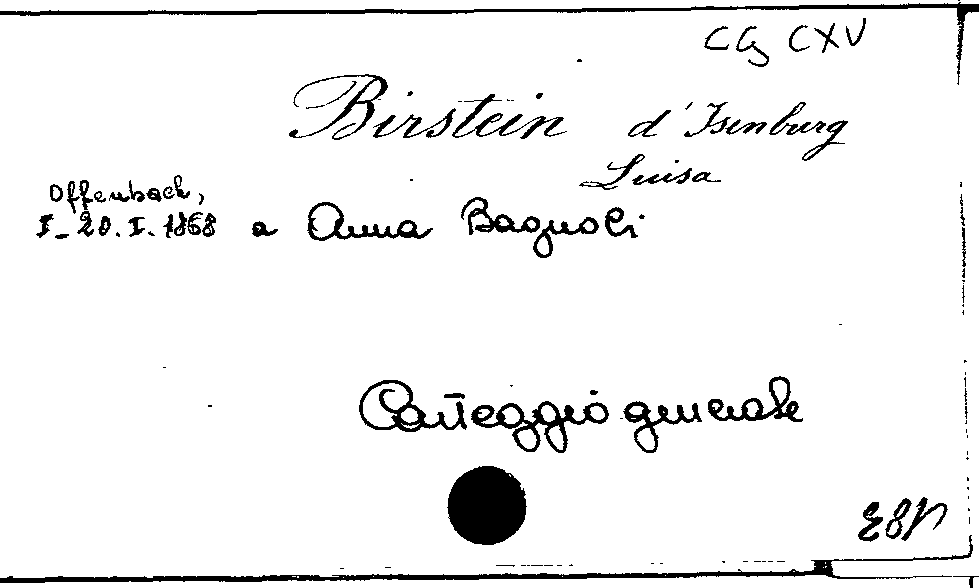 CG CXV
Birstein d'Isenburg
Luisa
Offenbach,
I_ 20. I. 1868 a Anna Bagnoli
Carteggio generale